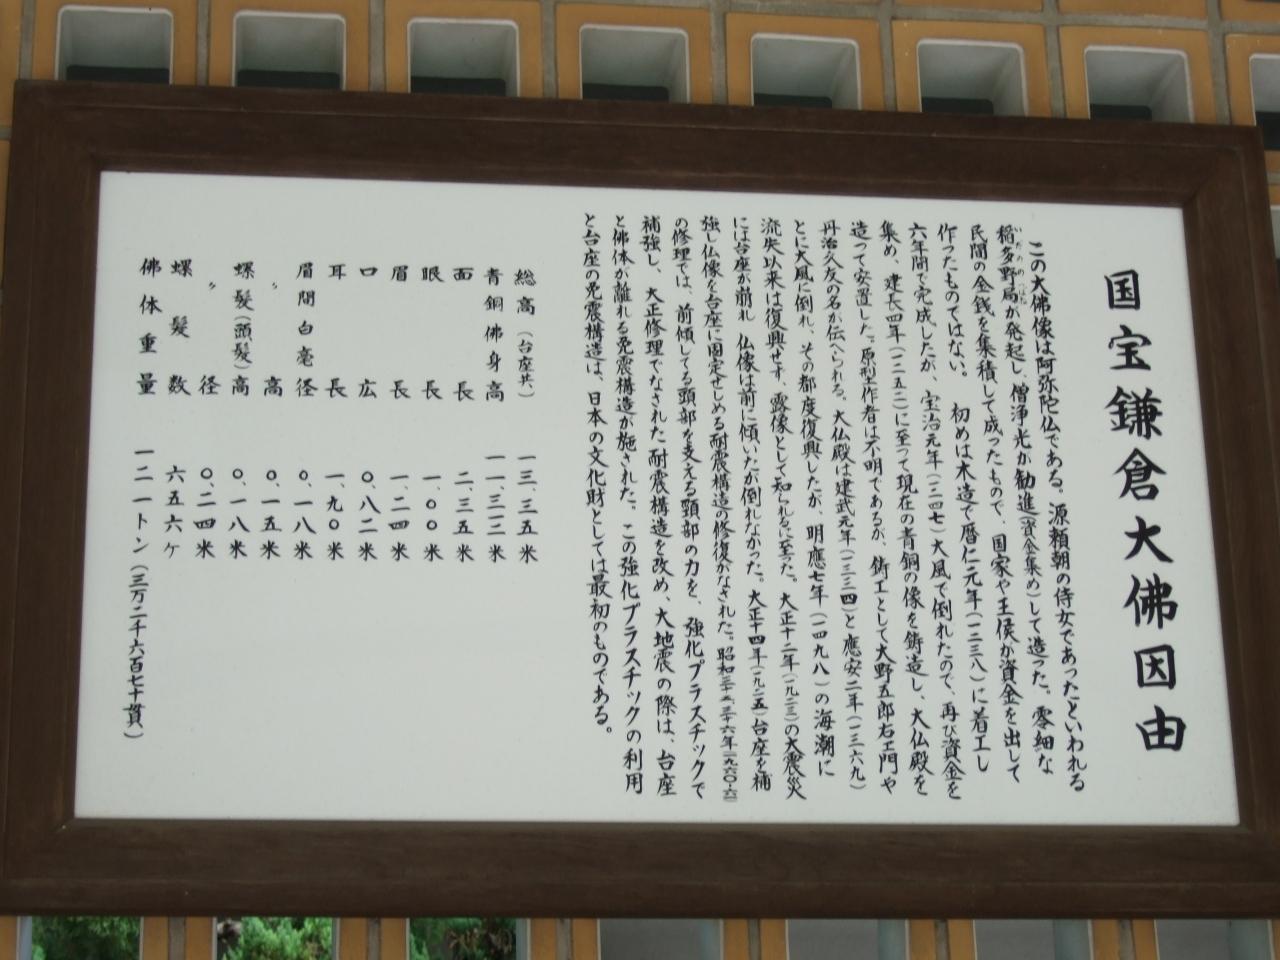 国宝鎌倉大佛因由
この大佛像は阿弥陀仏である。源頼朝の侍女であったといわれる
稲多野局が発起し、僧浄光が勧進(資金集め)して造った。零細な
民間の金銭を集積して成ったもので、国家や王侯が資金を出して
作ったものではない。 初めは木造で暦仁元年(一二三八)に着工し
六年間で完成したが、宝治元年(一二四七)大風で倒れたので、再び資金を
集め、建長四年(一二五二)に至って現在の青銅の像を鋳造し、大仏殿を
造って安置した。原型作者は不明であるが、鋳工として大野五郎右エ門や
丹治久友の名が伝へられる。大仏殿は建武元年(一三三四)と應安二年(一三六九)
とに大風に倒れ、その都度復興したが、明應七年(一四九八)の海潮に
流失以来は復興せず、露像として知られるに至った。大正十二年(一九二三)の大震災
には台座が崩れ 仏像は前に傾いたが倒れなかった。大正十四年(一九二五)台座を補
強し仏像を台座に固定せしめる耐震構造の修復がなされた。昭和三十五、三十六年(一九六〇-六一)
の修理では、前傾してる頭部を支える頸部の力を、強化プラスチックで
補強し、大正修理でなされた耐震構造を改め、大地震の際は、台座
と佛体が離れる免震構造が施された。この強化プラスチックの利用
と台座の免震構造は、日本の文化財としては最初のものである。
総高(台座共) 一三、三五米
青銅佛身高 一一、三一二米
面長 二、三五米
眼長 一、〇〇米
眉長 一、二四米
口広 〇、八二米
耳長 一、九〇米
眉間白毫径 〇、一八米
〃 高 〇、一五米
螺髪(頭髪)高 〇、一八米
〃 径 〇、二四米
螺髪数 六五六ケ
佛体重量 一二一トン(三万二千六百七十貫)